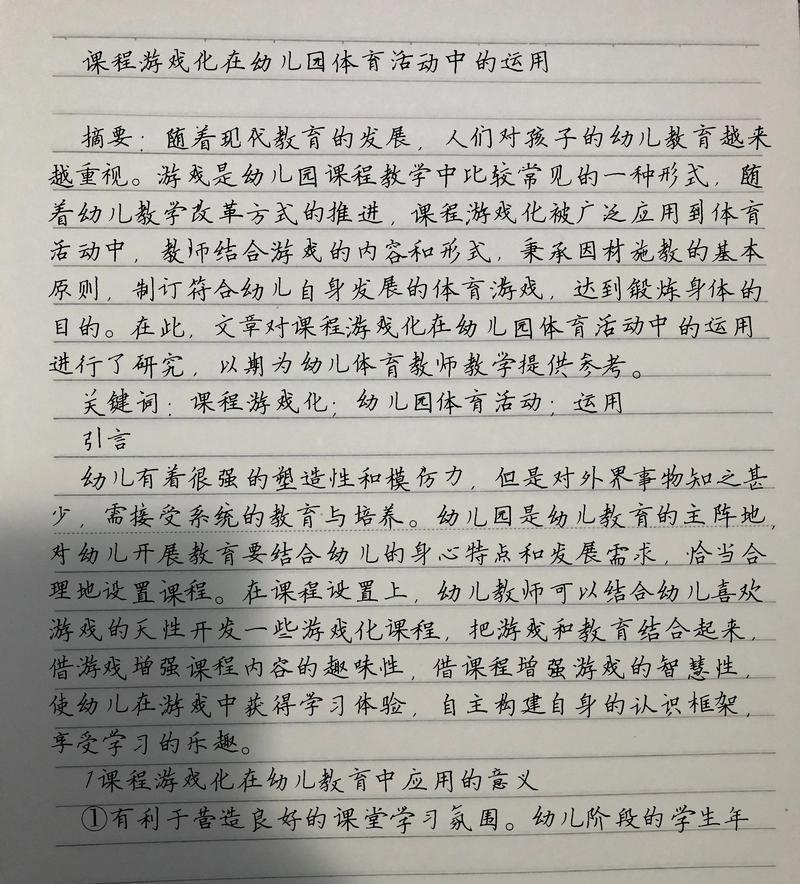 课程游戏化在幼儿园体育活动中的运用
摘要：随着现代教育的发展，人们对孩子的幼儿教育越来
越重视。游戏是幼儿园课程教学中比较常见的一种形式，随
着幼儿教学改革方式的推进，课程游戏化被广泛应用到体育
活动中，教师结合游戏的内容和形式，秉承因材施教的基本
原则，制订符合幼儿自身发展的体育游戏，达到锻炼身体的
目的。在此，文章对课程游戏化在幼儿园体育活动中的运用
进行了研究，以期为幼儿体育教师教学提供参考。
关键词：课程游戏化；幼儿园体育活动；运用
引言
幼儿有着很强的塑造性和模仿力，但是对外界事物知之甚
少，需接受系统的教育与培养。幼儿园是幼儿教育的主阵地，
对幼儿开展教育要结合幼儿的身心特点和发展需求，恰当合
理地设置课程。在课程设置上，幼儿教师可以结合幼儿喜欢
游戏的天性开发一些游戏化课程，把游戏和教育结合起来，
借游戏增强课程内容的趣味性，借课程增强游戏的智慧性，
使幼儿在游戏中获得学习体验，自主构建自身的认识框架，
享受学习的乐趣。
1课程游戏化在幼儿教育中应用的意义
①有利于营造良好的课堂学习氛围。幼儿阶段的学生年